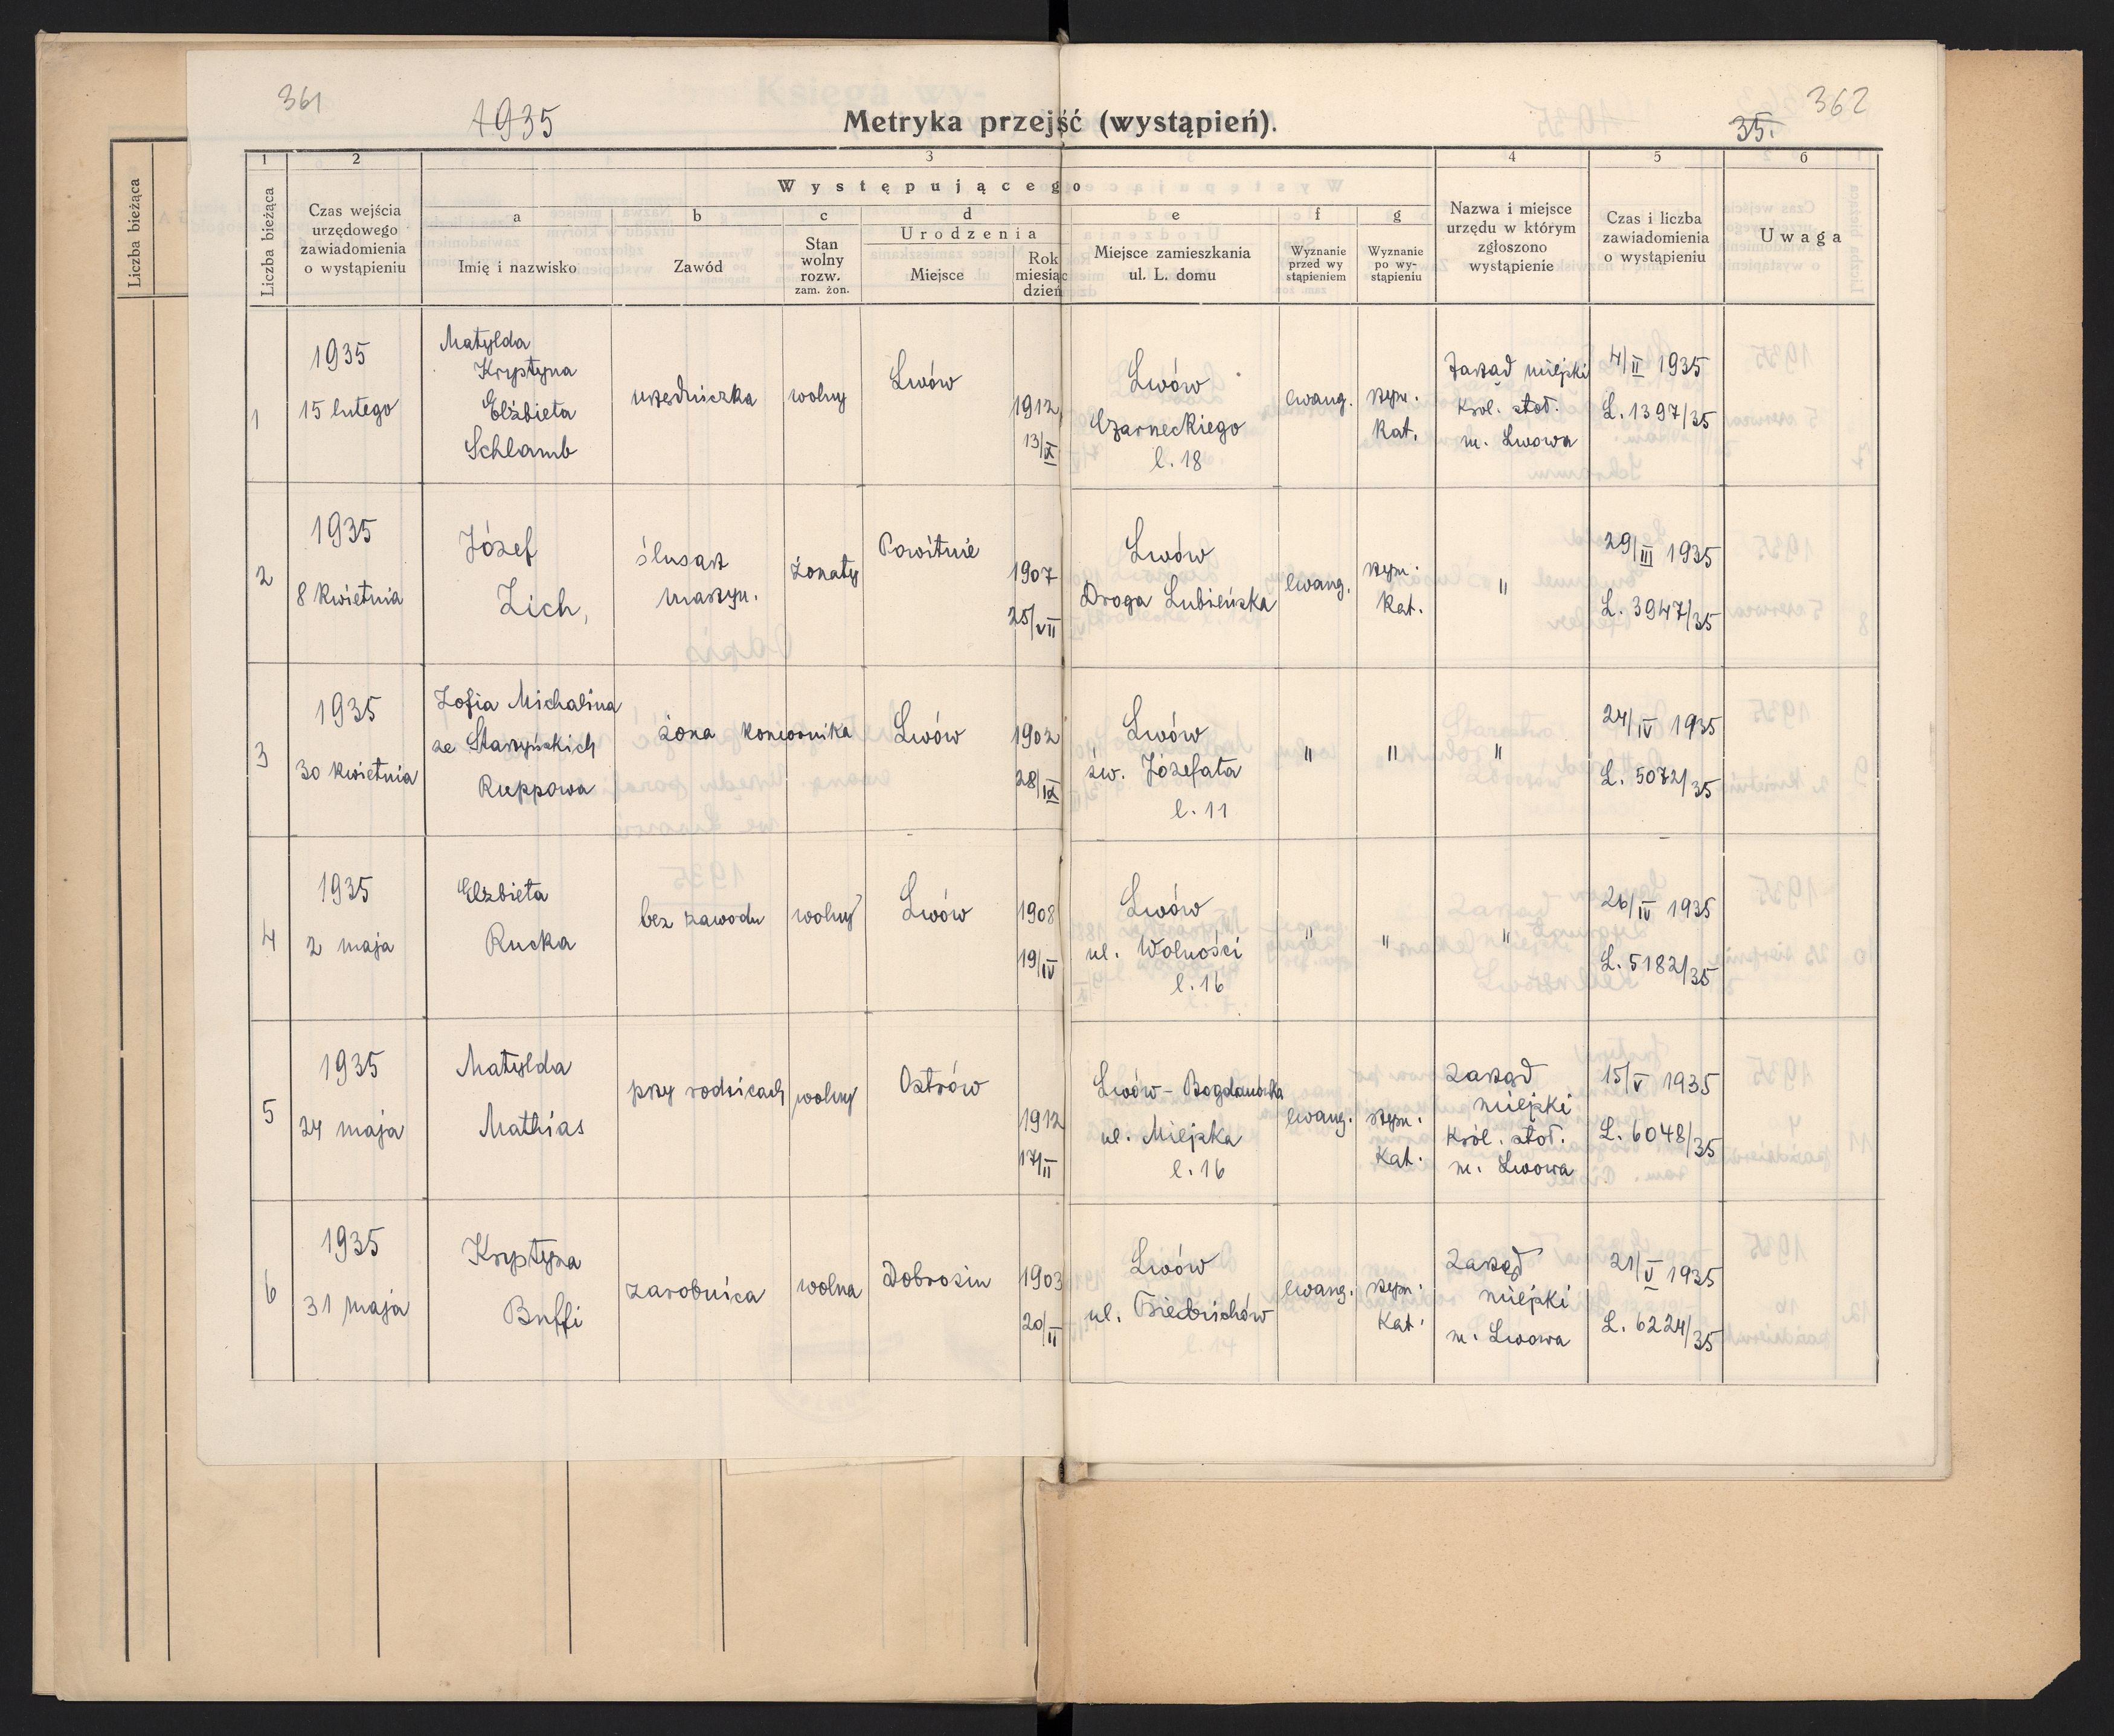 361
1935
Metryka przejść (wystąpień).
35.
362
Liczba bieżąca
1 2 3 4 5 6
Liczba bieżąca
Czas wejścia
urzędowego
zawiadomienia
o wystąpieniu
Występującego
a b c d e f g
Imię i nazwisko
Zawód
Stan
wolny
rozw.
zam. żon.
Urodzenia
Miejsce
Rok
miesiąc
dzień
Miejsce zamieszkania
ul. L. domu
Wyznanie
przed wy
stąpieniem
Wyznanie
po wy-
stąpieniu
Nazwa i miejsce
urzędu w którym
zgłoszono
wystąpienie
Czas i liczba
zawiadomienia
o wystąpieniu
Uwaga
1
1935
15 lutego
Matylda
Krystyna
Elżbieta
Schlamb
urzędniczka
wolny
Lwów
1912
13/IX
Lwów
Czarneckiego
l. 18
ewang.
rzym.
kat.
Zarząd miejski
król. stoł.
m. Lwowa
4/II 1935
L. 1397/35
2
1935
8 kwietnia
Józef
Zich,
ślusarz
maszyn.
żonaty
Powitnie
1907
25/VII
Lwów
Droga Lubieńska
ewang.
rzym.
kat.
"
29/III 1935
L. 3947/35
3
1935
30 kwietnia
Zofia Michalina
ze Starzyńskich
Rueppowa
żona komornika
Lwów
1902
28/IX
Lwów
św. Józefata
l. 11
"
"
"
24/IV 1935
L. 5072/35
4
1935
2 maja
Elżbieta
Rucka
bez zawodu
wolny
Lwów
1908
19/IV
Lwów
ul. Wolności
l. 16
"
"
"
26/IV 1935
L. 5182/35
5
1935
24 maja
Matylda
Mathias
przy rodzicach
wolny
Ostrów
1912
17/II
Lwów - Bogdanówka
ul. Miejska
l. 16
ewang.
rzym.
kat.
Zarząd
miejski
król. stoł.
m. Lwowa
15/V 1935
L. 6048/35
6
1935
31 maja
Krystyna
Buffi
zarobnica
wolna
Dobrosin
1903
20/II
Lwów
ul.
ewang.
rzym.
kat.
Zarząd
miejski
m. Lwowa
21/V 1935
L. 6224/35